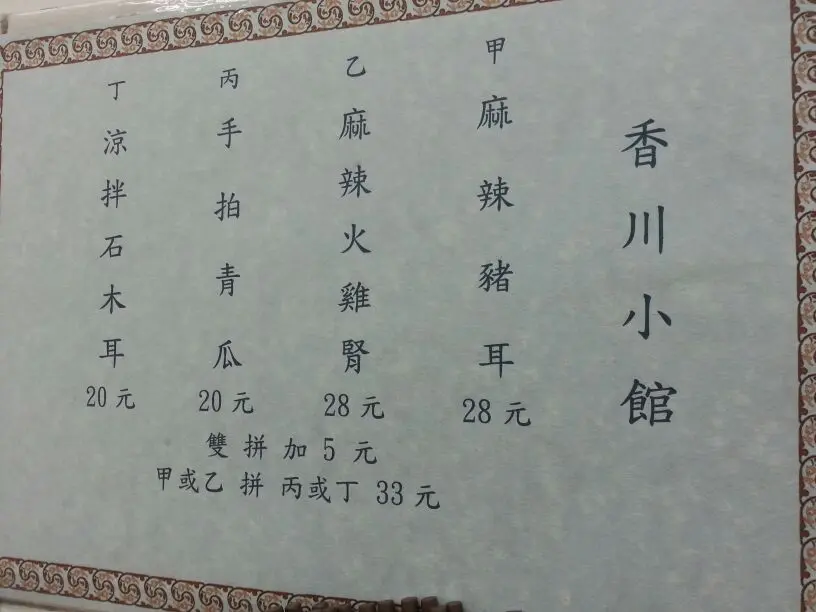 香川小館
甲麻辣豬耳28元
乙麻辣火雞腎28元
丙手拍青瓜20元
丁涼拌石木耳20元
雙拼加5元
甲或乙 拼 丙或丁 33元